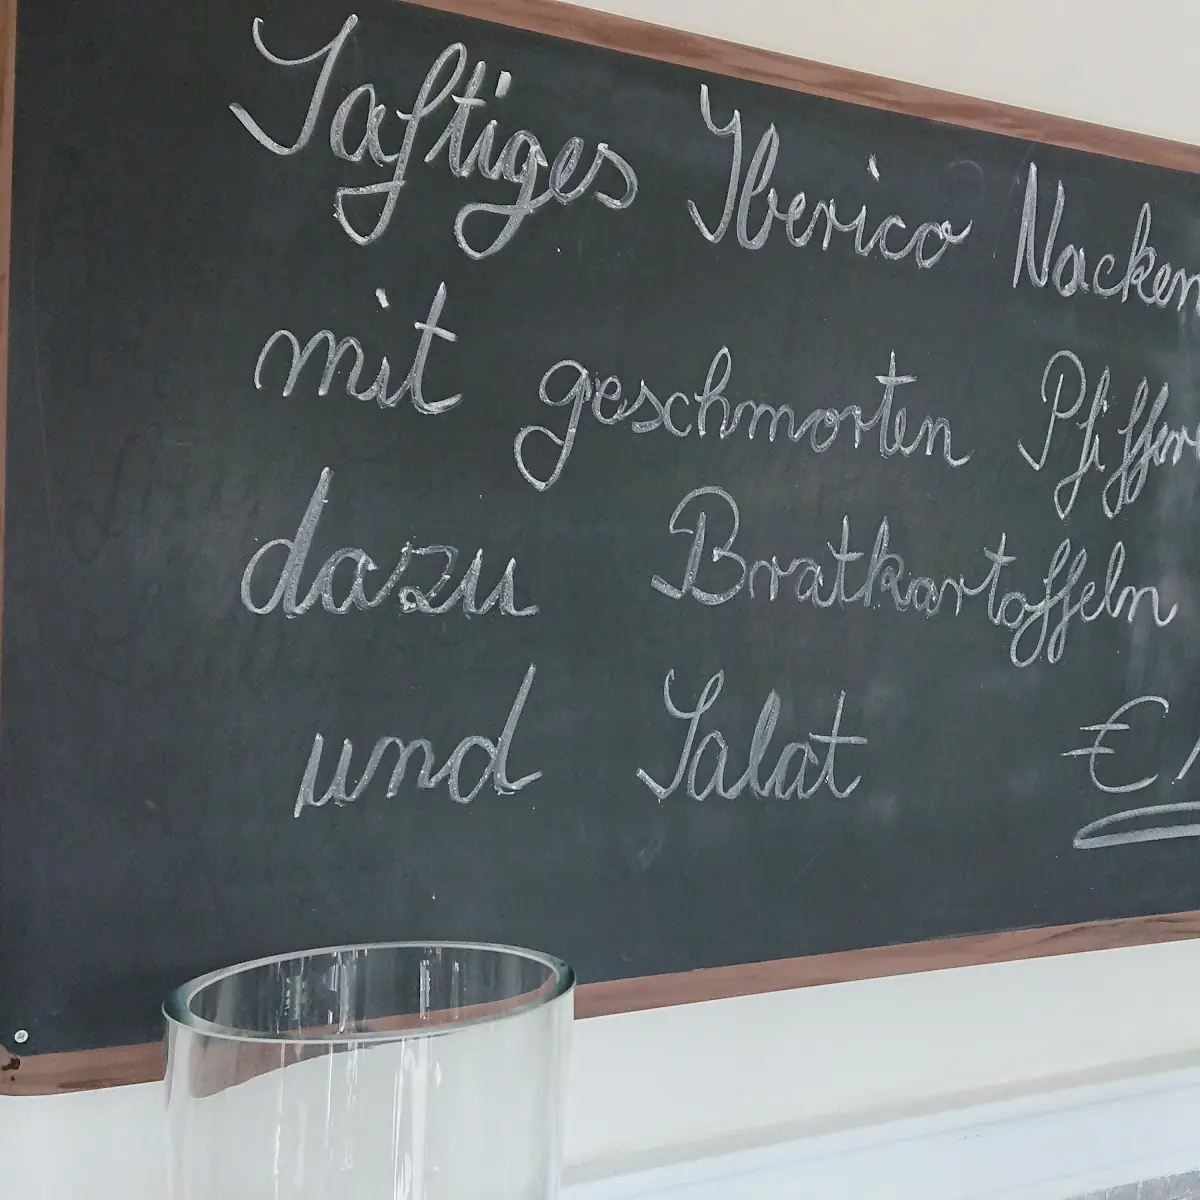 Saftiges Iberico Nacken
mit geschmorten Pfiffer
dazu Bratkartoffeln
und Salat €